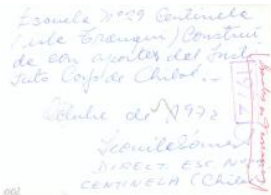 Escuela Nº29 Centinela
(Isla Tranqui) Construi
da con aportes del Insti
tuto Corfo de Chiloé.-
Octubre de 1972
DIRECT. ESC. Nº
CENTINELA (Chiloé
1972
002